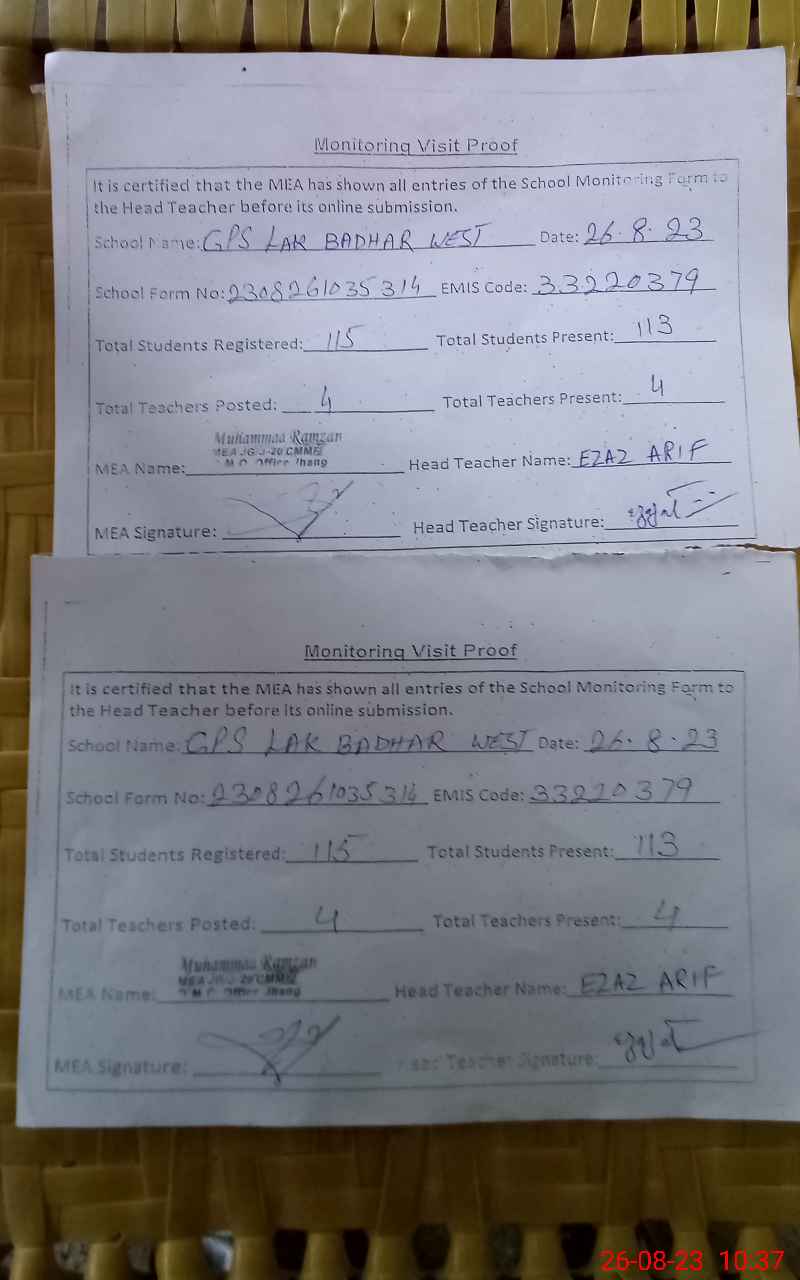 Monitoring Visit Proof
It is certified that the MEA has shown all entries of the School Monitoring Form to
the Head Teacher before its online submission.
School Name: GPS LAK BADHAR WEST Date: 26.8.23
School Form No: 2308261035314 EMIS Code: 33220379
Total Students Registered: 115 Total Students Present: 113
Total Teachers Posted: 4 Total Teachers Present: 4
Muhammad Ramzan
MEA CMMF
Office Jhang
MEA Name: Head Teacher Name: EZAZ ARIF
MEA Signature: Head Teacher Signature:
Monitoring Visit Proof
It is certified that the MEA has shown all entries of the School Monitoring Form to
the Head Teacher before its online submission.
School Name: GPS LAK BADHAR WEST Date: 26.8.23
School Form No: 2308261035314 EMIS Code: 33220379
Total Students Registered: 115 Total Students Present: 113
Total Teachers Posted: 4 Total Teachers Present: 4
Muhammad Ramzan
MEA CMMF
Office Jhang
MEA Name: Head Teacher Name: EZAZ ARIF
MEA Signature: Head Teacher Signature:
26-08-23 10:37